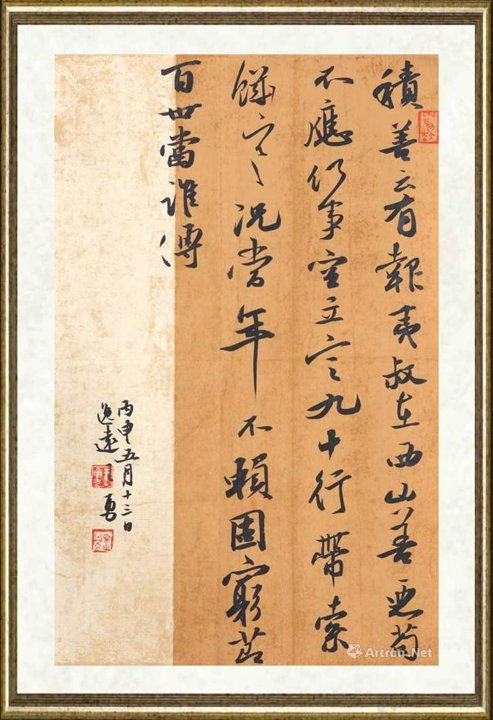 積善云有報夷叔在西山善惡苟
不應何事空立言九十行帶索
饑寒況當年不賴固窮節
百世當誰傳
丙申五月十三日
逸遠王勇
Artron.Net